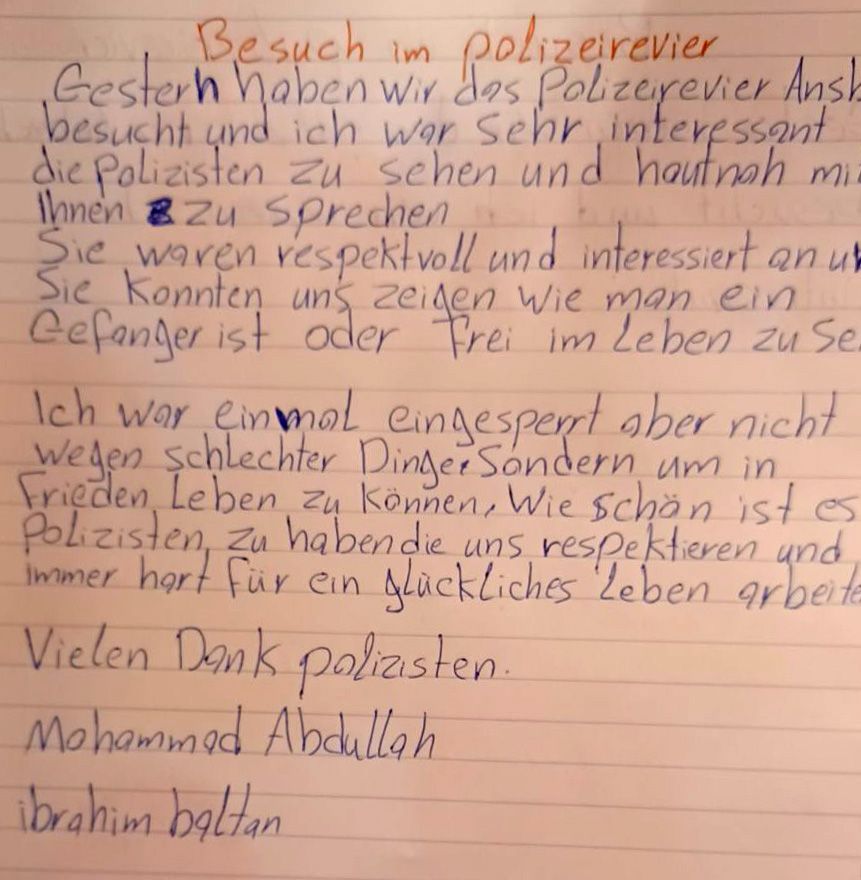 Besuch im polizeirevier
Gestern haben wir das Polizeirevier Ansb
besucht und ich war sehr interessant
die Polizisten zu sehen und hautnah mi
Ihnen zu sprechen
Sie waren respektvoll und interessiert an u
Sie konnten uns zeigen wie man ein
Gefanger ist oder frei im Leben zu se
Ich war einmal eingesperrt aber nicht
wegen schlechter Dinge, Sondern um in
Frieden Leben zu können, Wie schön ist es
Polizisten, zu haben die uns respektieren und
immer hart für ein glückliches Leben arbeite
Vielen Dank polizisten.
Mohammad Abdullah
ibrahim baltan